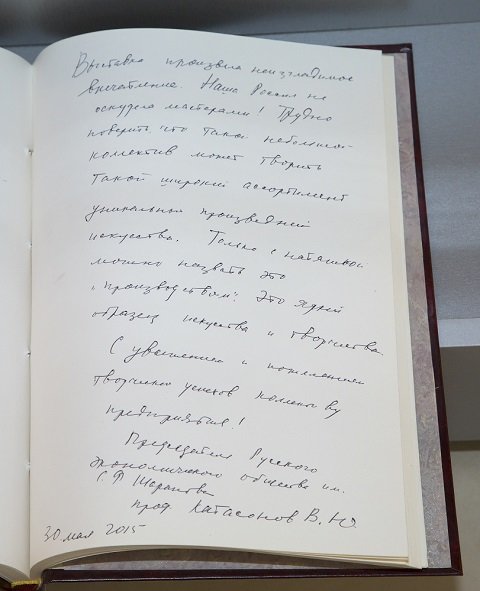 Выставка произвела неизгладимое
впечатление. Наша Россия не
оскудела мастерами! Трудно
поверить, что такой небольшой
коллектив может творить
такой широкий ассортимент
уникальных произведений
искусства. Только с натяжкой
можно назвать это
"производством". Это
образец искусства и творчества.
С уважением и пожеланием
творческих успехов коллективу
предприятия!
Председатель Русского
экономического общества им.
С. Ф. Шарапова
проф. Катасонов В. Ю.
30 мая 2015